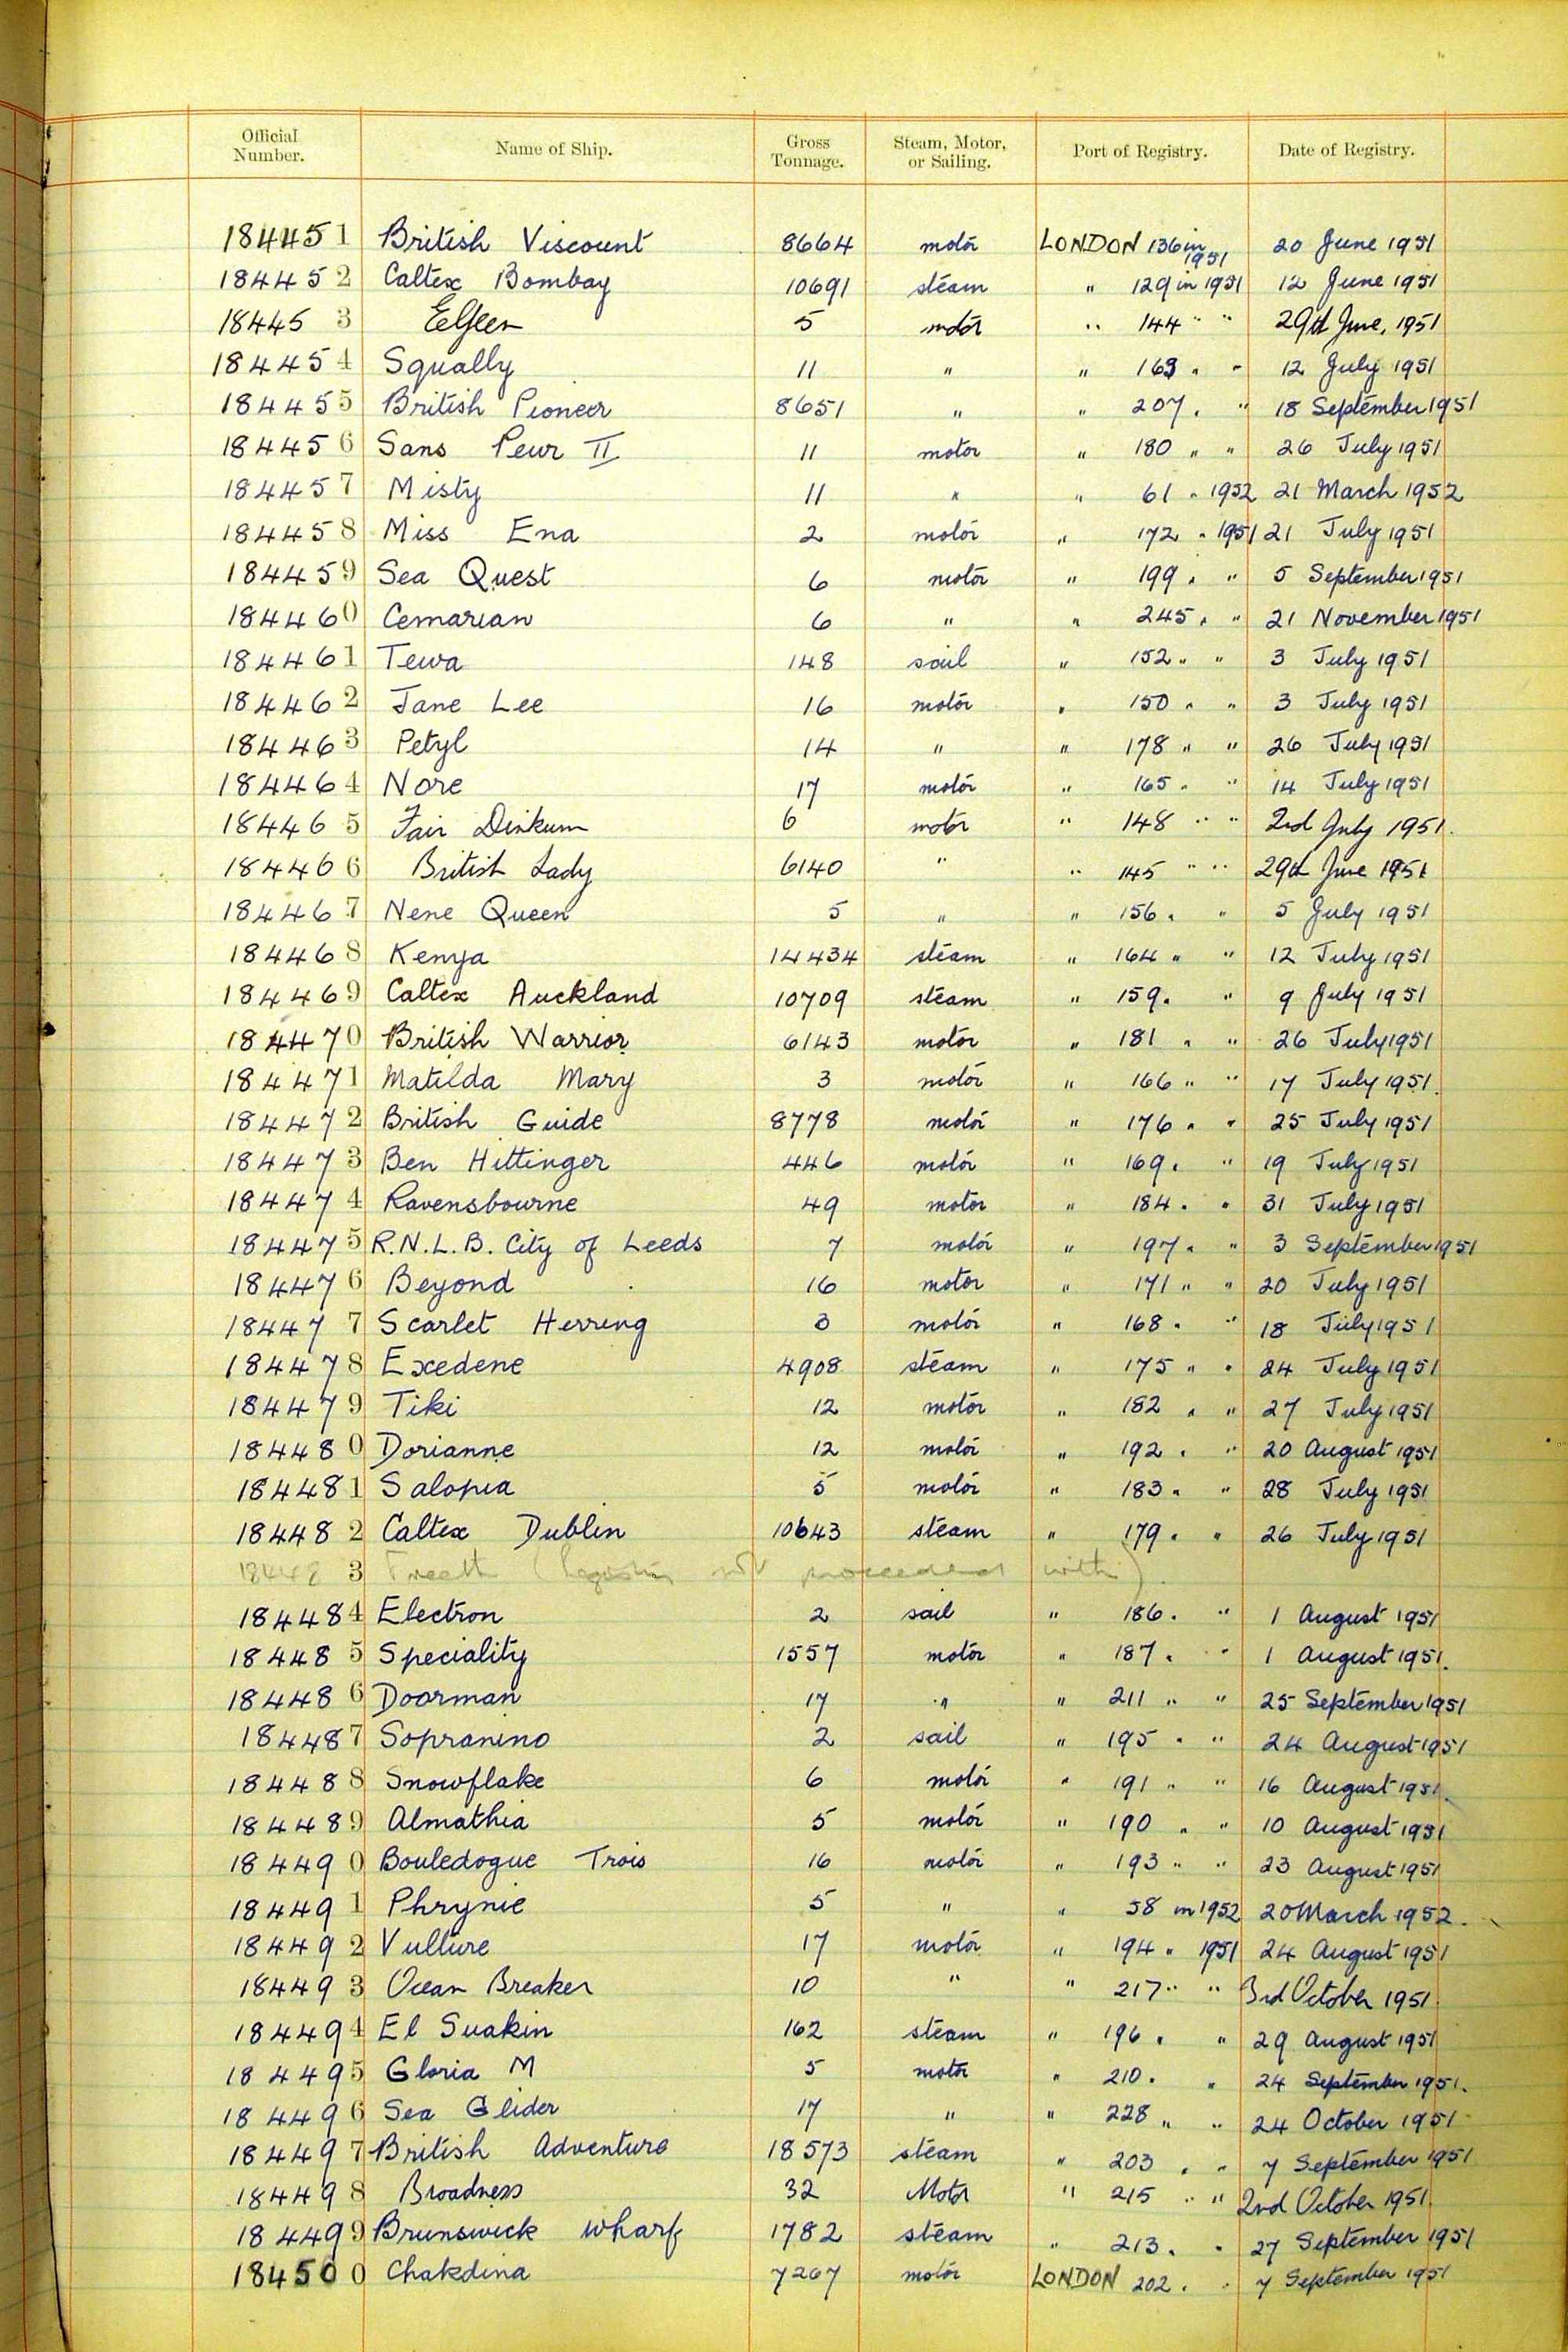 Official Number. Name of Ship. Gross Tonnage. Steam, Motor, or Sailing. Port of Registry. Date of Registry.
184451 British Viscount 8664 motor LONDON 136 in 1951 20 June 1951
184452 Caltex Bombay 10691 steam " 129 in 1951 12 June 1951
184453 5 motor " 144 " " 29th June, 1951
184454 Squally 11 " " 163 " " 12 July 1951
184455 British Pioneer 8651 " " 207 " " 18 September 1951
184456 Sans Peur II 11 motor " 180 " " 26 July 1951
184457 Misty 11 " " 61 " 1952 21 March 1952
184458 Miss Ena 2 motor " 172 " 1951 21 July 1951
184459 Sea Quest 6 motor " 199 " " 5 September 1951
184460 Cemarian 6 " " 245 " " 21 November 1951
184461 Tewa 148 sail " 152 " " 3 July 1951
184462 Jane Lee 16 motor " 150 " " 3 July 1951
184463 Petyl 14 " " 178 " " 26 July 1951
184464 Nore 17 motor " 165 " " 14 July 1951
184465 Fair Dinkum 6 motor " 148 " " 2nd July 1951.
184466 British Lady 6140 " " 145 " " 29th June 1951
184467 Nene Queen 5 " " 156 " " 5 July 1951
184468 Kenya 14434 steam " 164 " " 12 July 1951
184469 Caltex Auckland 10709 steam " 159 " " 9 July 1951
184470 British Warrior 6143 motor " 181 " " 26 July 1951
184471 Matilda Mary 3 motor " 166 " " 17 July 1951.
184472 British Guide 8778 motor " 176 " " 25 July 1951
184473 Ben Hittinger 446 motor " 169 " " 19 July 1951
184474 Ravensbourne 49 motor " 184 " " 31 July 1951
184475 R.N.L.B. City of Leeds 7 motor " 197 " " 3 September 1951
184476 Beyond 16 motor " 171 " " 20 July 1951
184477 Scarlet Herring 3 motor " 168 " " 18 July 1951
184478 Exedene 4908 steam " 175 " " 24 July 1951
184479 Tiki 12 motor " 182 " " 27 July 1951
184480 Dorianne 12 motor " 192 " " 20 August 1951
184481 Salopia 5 motor " 183 " " 28 July 1951
184482 Caltex Dublin 10643 steam " 179 " " 26 July 1951
184483 (Registry not proceeded with)
184484 Electron 2 sail " 186 " " 1 August 1951
184485 Speciality 1557 motor " 187 " " 1 August 1951.
184486 Doorman 17 " " 211 " " 25 September 1951
184487 Sopranino 2 sail " 195 " " 24 August 1951
184488 Snowflake 6 motor " 191 " " 16 August 1951.
184489 Almathia 5 motor " 190 " " 10 August 1951
184490 Bouledogue Trois 16 motor " 193 " " 23 August 1951
184491 Phrynie 5 " " 58 in 1952 20 March 1952.
184492 Vulture 17 motor " 194 " 1951 24 August 1951
184493 Ocean Breaker 10 " " 217 " " 3rd October 1951.
184494 El Suakin 162 steam " 196 " " 29 August 1951
184495 Gloria M 5 motor " 210 " " 24 September 1951.
184496 Sea Glider 17 " " 228 " " 24 October 1951
184497 British Adventure 18573 steam " 203 " " 7 September 1951
184498 Broadness 32 Motor " 215 " " 2nd October 1951
184499 Brunswick Wharf 1782 steam " 213 " " 27 September 1951
184500 Chakdina 7267 motor LONDON 202 " " 7 September 1951